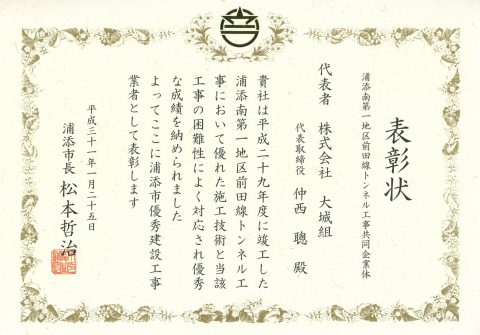 表彰状
浦添南第一地区前田線トンネル工事共同企業体
代表者　株式会社　大城組
代表取締役　仲西　聰　殿
貴社は平成二十九年度に竣工した
浦添南第一地区前田線トンネル工
事において優れた施工技術と当該
工事の困難性によく対応され優秀
な成績を納められました
よってここに浦添市優秀建設工事
業者として表彰します
平成三十一年一月二十五日
浦添市長　松本哲治